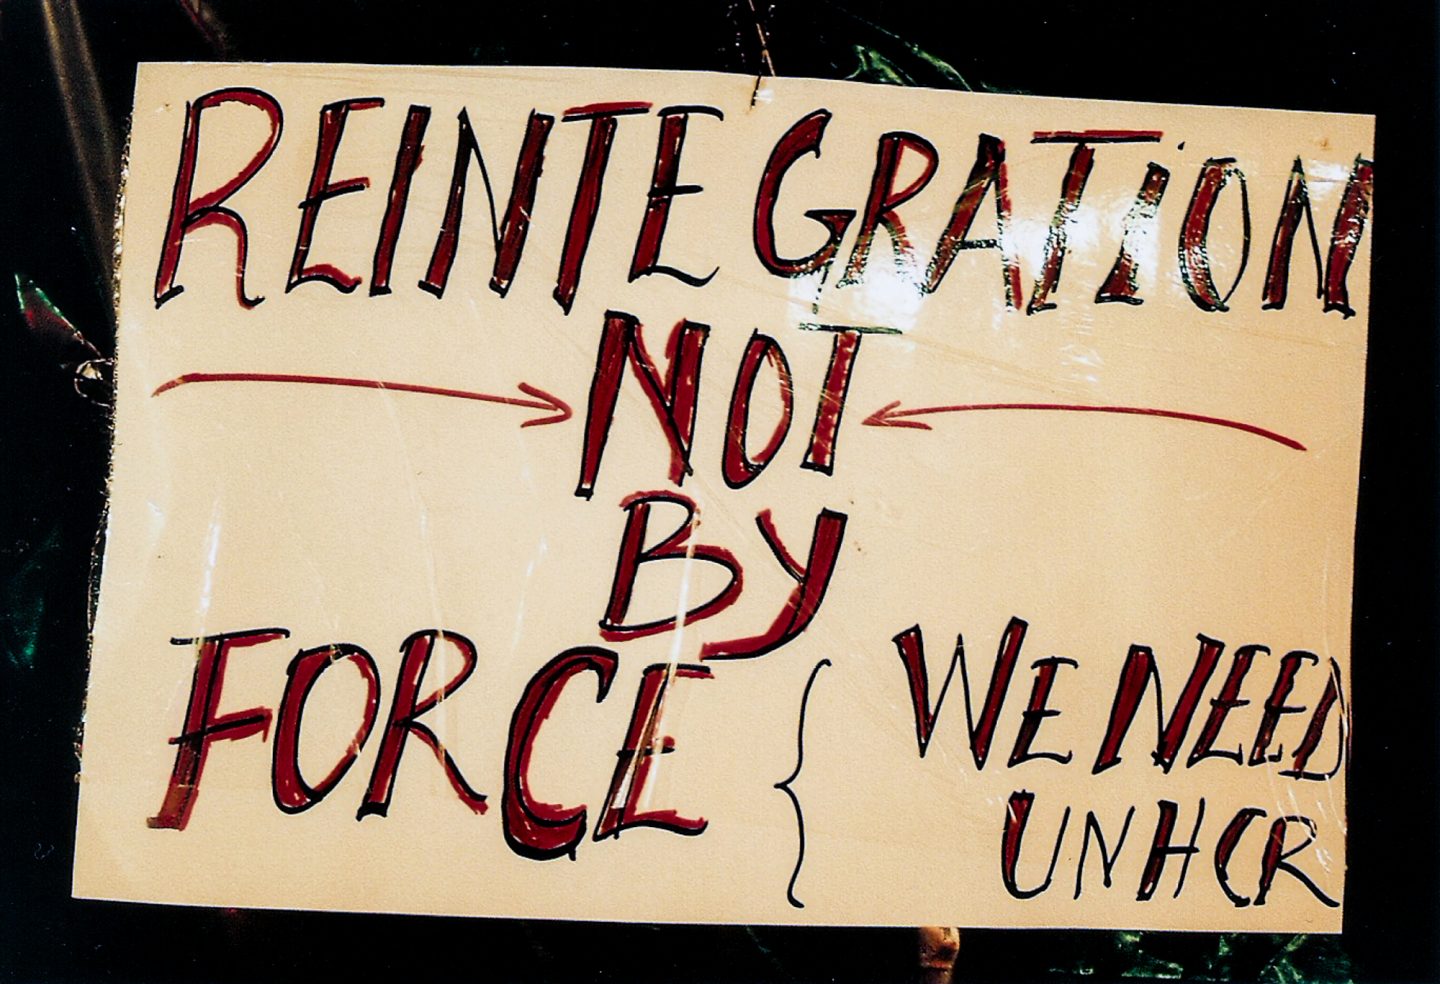 REINTEGRATiON
NOT
BY
FORCE
WE NEED
UNHCR